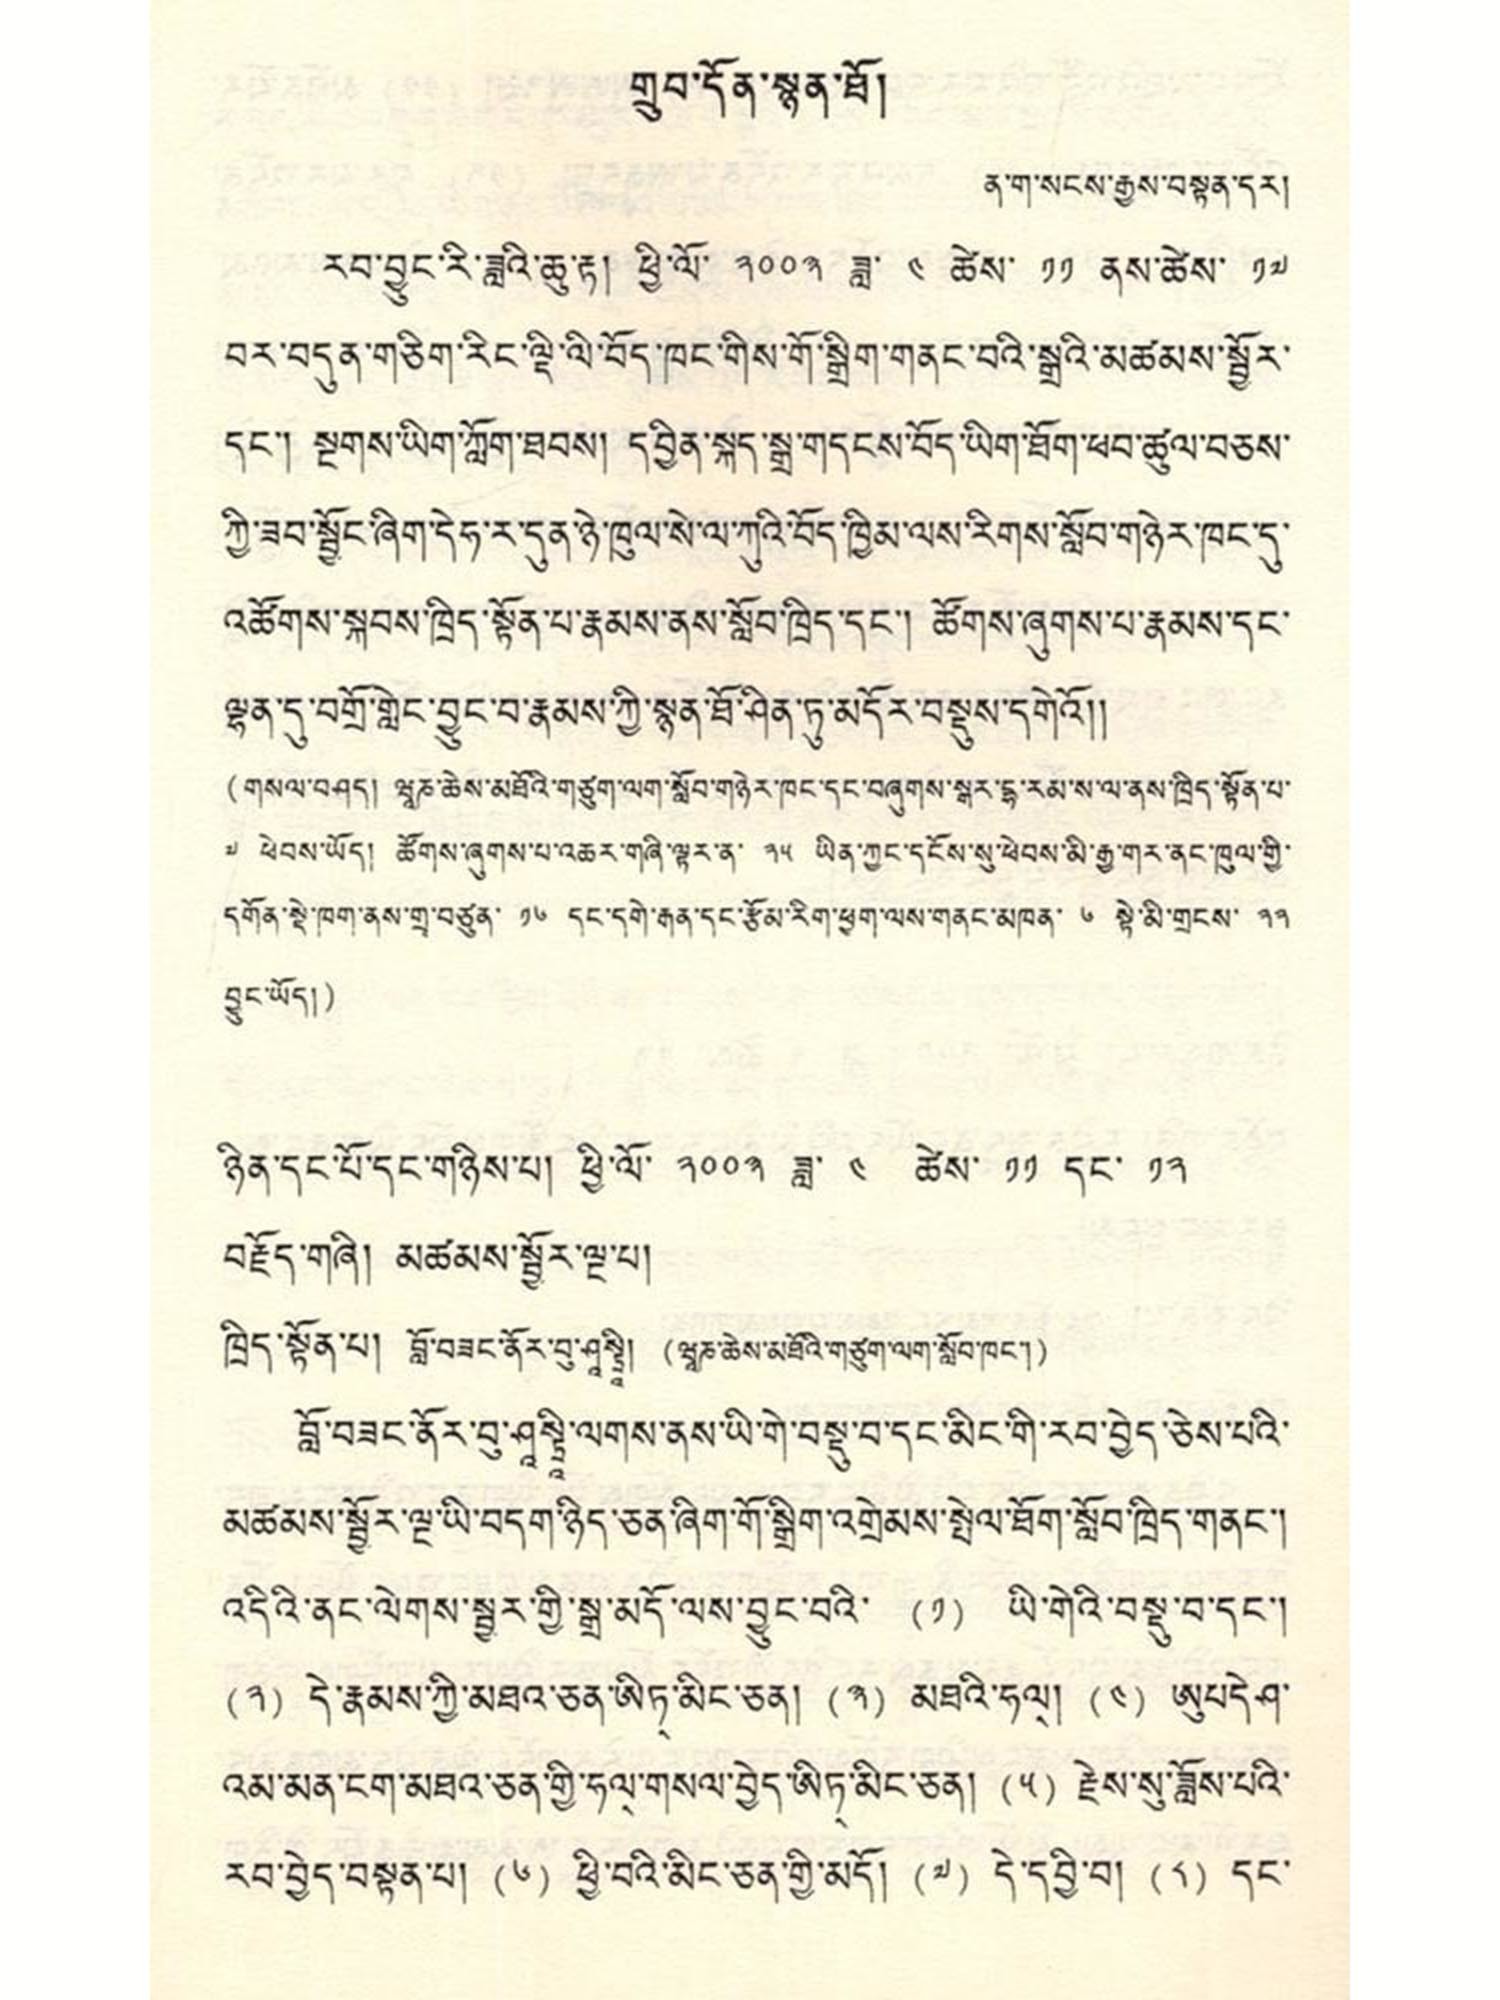 གྲུབ་དོན་སྙན་ཐོ།
ན་ག་སངས་རྒྱས་བསྟན་དར།
རབ་བྱུང་རི་ཟླའི་ཆུ་རྟ། ཕྱི་ལོ་ ༢༠༠༣ ཟླ་ ༤ ཚེས་ ༡༡ ནས་ཚེས་ ༡༧
བར་བདུན་གཅིག་རིང་ལྡི་ལི་བོད་ཁང་གིས་གོ་སྒྲིག་གནང་བའི་སྒྲའི་མཚམས་སྦྱོར་
དང་། སྔགས་ཡིག་ཀློག་ཐབས། དབྱིན་སྐད་སྒྲ་གདངས་བོད་ཡིག་ཐོག་ཕབ་ཚུལ་བཅས་
ཀྱི་ཟབ་སྦྱོང་ཞིག་དེ་ཧ་ར་དུན་ཉེ་ཁུལ་སེ་ལ་ཀུའི་བོད་ཁྱིམ་ལས་རིགས་སློབ་གཉེར་ཁང་དུ་
འཚོགས་སྐབས་ཁྲིད་སྟོན་པ་རྣམས་ནས་སློབ་ཁྲིད་དང་། ཚོགས་ཞུགས་པ་རྣམས་དང་
ལྷན་དུ་བགྲོ་གླེང་བྱུང་བ་རྣམས་ཀྱི་སྙན་ཐོ་ཤིན་ཏུ་མདོར་བསྡུས་དགེའོ།།
(གསལ་བཤད། ཝཱཎ་ཆེས་མཐོའི་གཙུག་ལག་སློབ་གཉེར་ཁང་དང་བཞུགས་སྒར་དྷ་རམ་ས་ལ་ནས་ཁྲིད་སྟོན་པ་
༧ ཕེབས་ཡོད། ཚོགས་ཞུགས་པ་འཆར་གཞི་ལྟར་ན་ ༢༥ ཡིན་ཀྱང་དངོས་སུ་ཕེབས་མི་རྒྱ་གར་ནང་ཁུལ་གྱི་
དགོན་སྡེ་ཁག་ནས་གྲྭ་བཙུན་ ༡༦ དང་དགེ་རྒན་དང་རྩོམ་རིག་ཕྱག་ལས་གནང་མཁན་ ༦ སྟེ་མི་གྲངས་ ༢༢
བྱུང་ཡོད།)
ཉིན་དང་པོ་དང་གཉིས་པ། ཕྱི་ལོ་ ༢༠༠༣ ཟླ་ ༤ ཚེས་ ༡༡ དང་ ༡༢
བརྗོད་གཞི། མཚམས་སྦྱོར་ལྔ་པ།
ཁྲིད་སྟོན་པ། བློ་བཟང་ནོར་བུ་ཤཱསྟྲཱི། (ཝཱཎ་ཆེས་མཐོའི་གཙུག་ལག་སློབ་ཁང་།)
བློ་བཟང་ནོར་བུ་ཤཱསྟྲཱི་ལགས་ནས་ཡི་གེ་བསྡུ་བ་དང་མིང་གི་རབ་བྱེད་ཅེས་པའི་
མཚམས་སྦྱོར་ལྔ་ཡི་བདག་ཉིད་ཅན་ཞིག་གོ་སྒྲིག་འགྲེམས་སྤེལ་ཐོག་སློབ་ཁྲིད་གནང་།
འདིའི་ནང་ལེགས་སྦྱར་གྱི་སྒྲ་མདོ་ལས་བྱུང་བའི་ (༡) ཡི་གེའི་བསྡུ་བ་དང་།
(༢) དེ་རྣམས་ཀྱི་མཐའ་ཅན་ཨིཏ྄་མིང་ཅན། (༣) མཐའི་ཧལ྄། (༤) ཨུཔདེཤ་
འམ་མན་ངག་མཐའ་ཅན་གྱི་ཧལ྄་གསལ་བྱེད་ཨིཏ྄་མིང་ཅན། (༥) རྗེས་སུ་ཟློས་པའི་
རབ་བྱེད་བསྟན་པ། (༦) ཕྱི་བའི་མིང་ཅན་གྱི་མདོ། (༧) དེ་དབྱི་བ། (༨) དང་